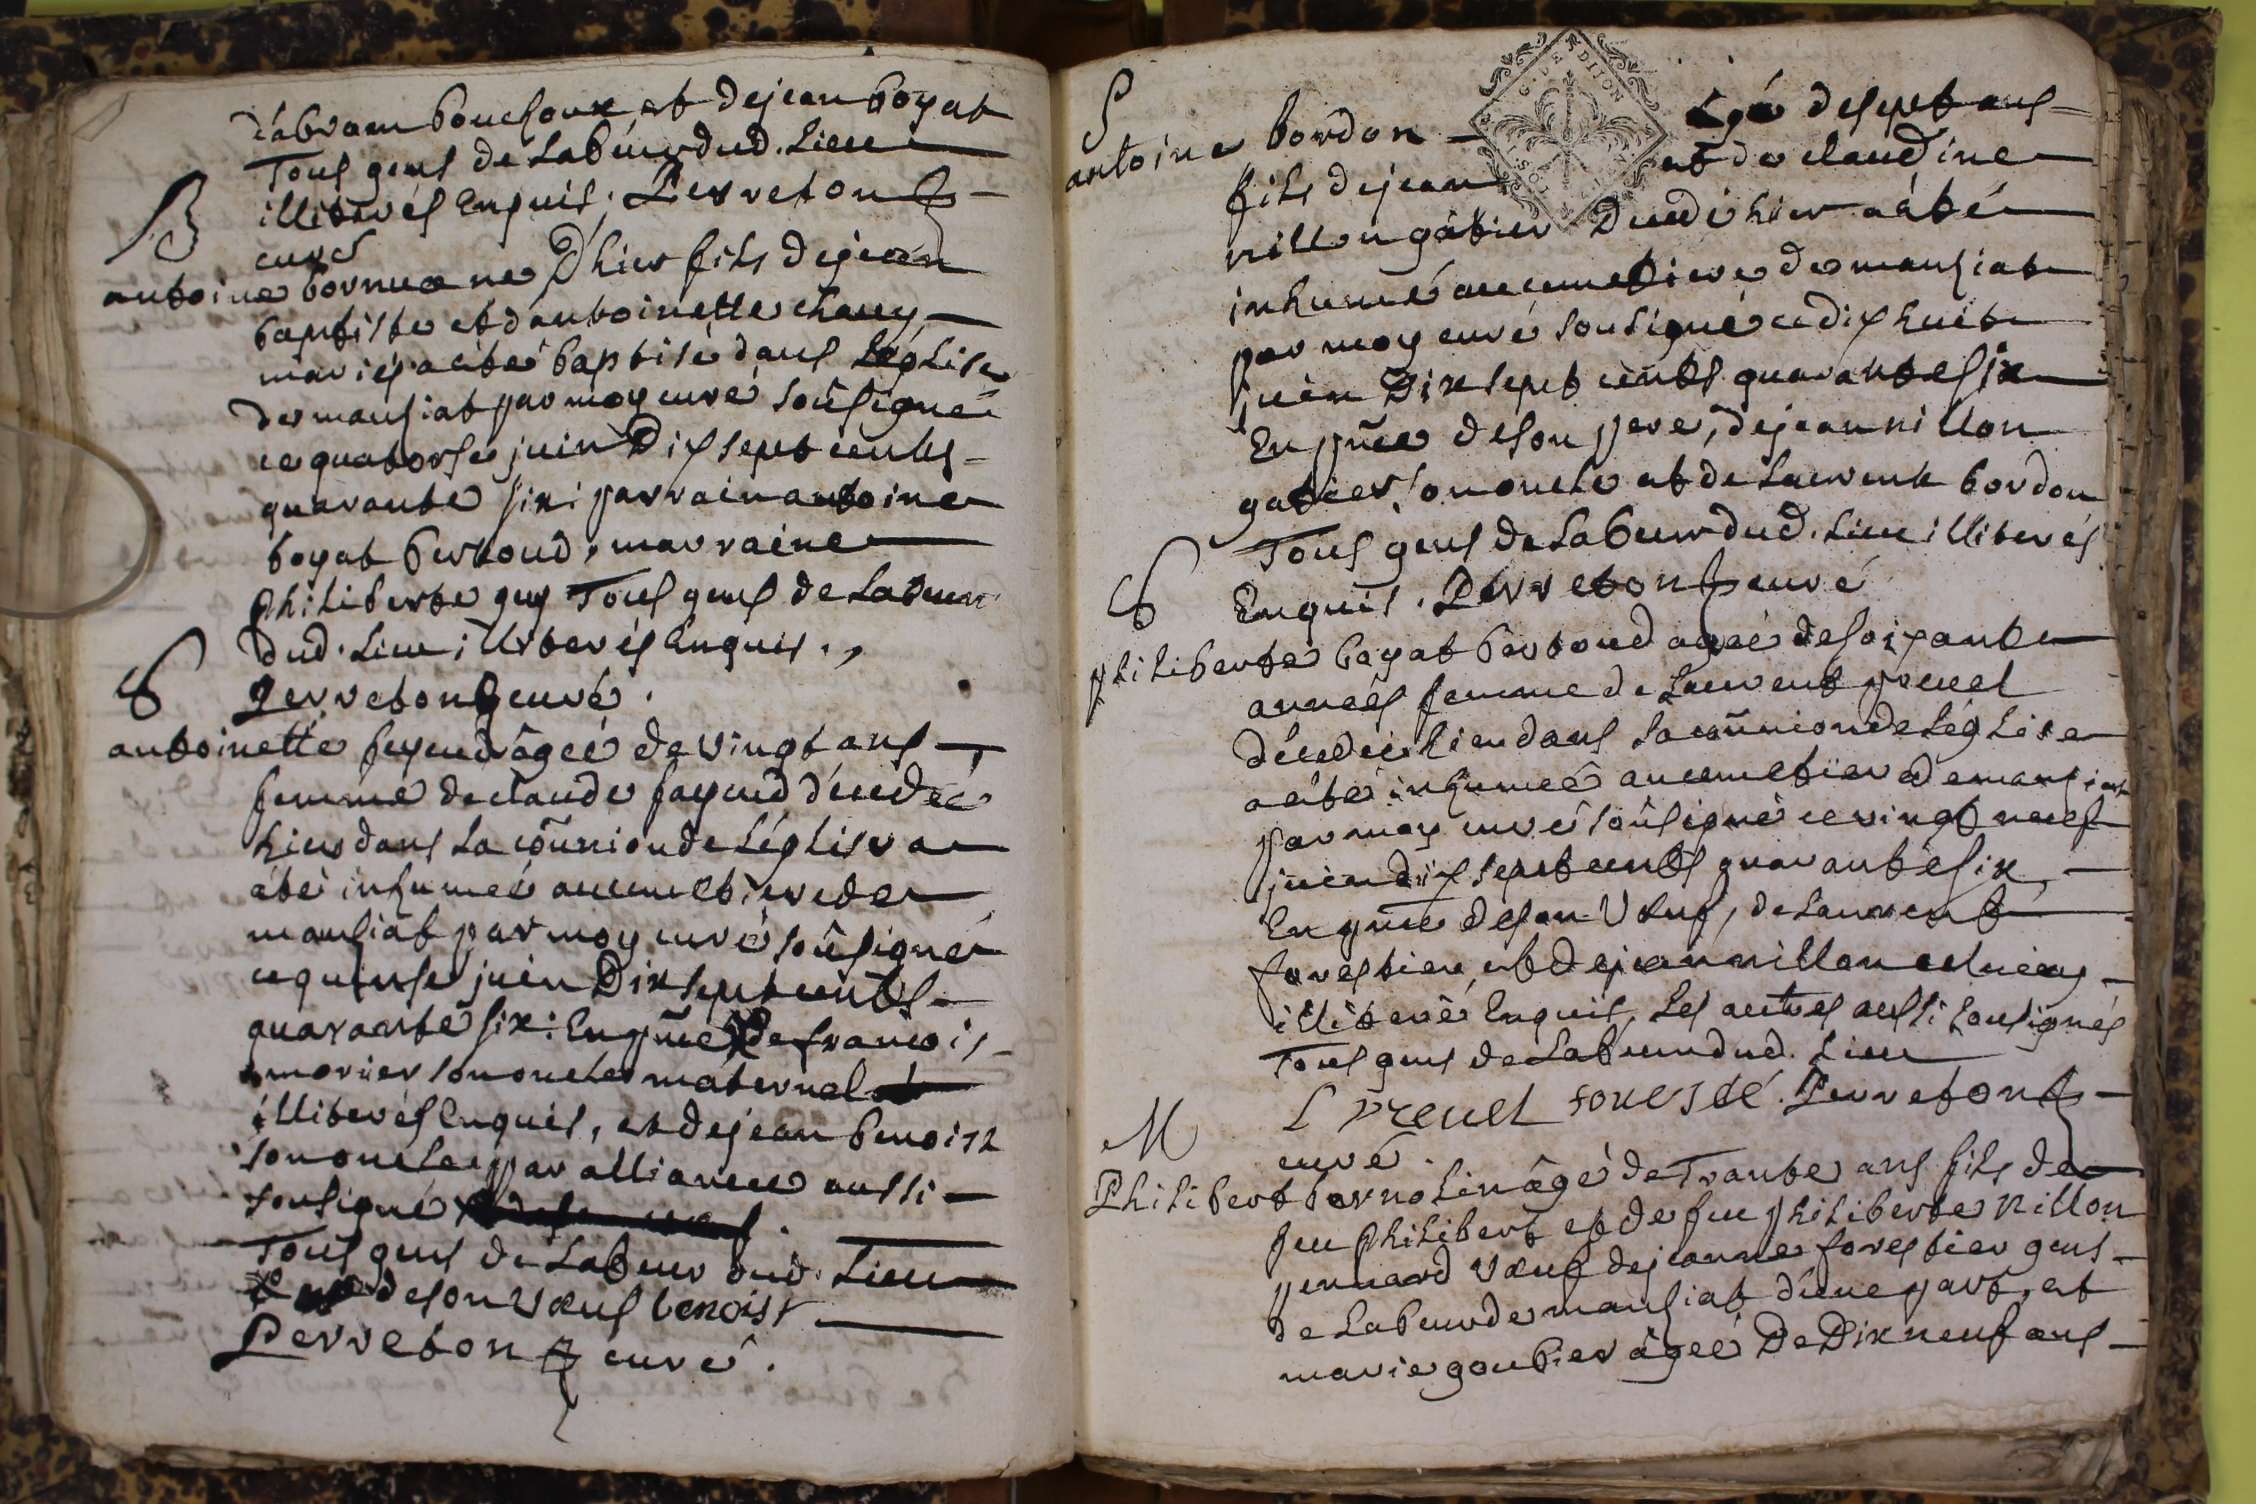 d'abram bouchoux et de jean boyat
Tous gens de Labeur dud. Lieu
illiterés Enquis. Perreton
curé
B
antoine bornua né D'hier fils de jean
baptiste et d'antoinette chary
mariés a été baptisé dans L'église
de mansiat par moy curé soûsigné
ce quatorse juin Dix sept cents
quarante six: parrain antoine
boyat bertoud, marraine
philiberte guy Tous gens de Labeur
dud. Lieu illiterés Enquis.,
Perreton curé.
S
antoinette feyeud âgeé de vingt ans
femme de claude fayeud décedeé
hier dans La com̃union de L'église a
été inhumeé au cimetiere de
mansiat par moy curé soûsigné
ce quinse juin Dix sept cents
quarante six: En pñce de francois
morier son oncle maternel
illiterés Enquis, et de jean benoist
son oncle par alliance aussi
sousigné
Tous gens de Labeur dud. Lieu
de son Vœuf benoist
Perreton curé.
S
antoine bordon Agé de sept ans
fils de jean et de claudine
nillon gâtier Décedé hier a été
inhumé au cimetiere de mansiat
par moy curé sousigné ce dix huit
juin Dix sept cents quarante six
En pñce de son pere, de jean nillon
gatier son oncle et de Laurent bordon
Tous gens de Labeur dud. Lieu illiterés
Enquis. Perreton curé
S
philiberte boyat bertoud ageé de soixante
anneés femme de Laurent preuel
décedeé hier dans La coñunion de L'église
a été inhumeé au cimetiere de mansiat
par moy curé soûsigné ce vingt neuf
juin dix sept cents quarante six,
En pñce de son Vœuf, de Laurent
forestier, et de jean nillon celuicy
illiteré Enquis, Les autres aussi sousignés
Tous gens de Labeur dud. Lieu
L preuel forestié. Perreton
curé.
M
Philibert bornolin âgé de Trante ans fils de
feu philibert et de feu philiberte nillon
pennard Vœuf de jeanne forestier gens
de Labeur de mansiat d'une part, et
marie goubier âgeé De Dix neuf ans
G. DE DIJON